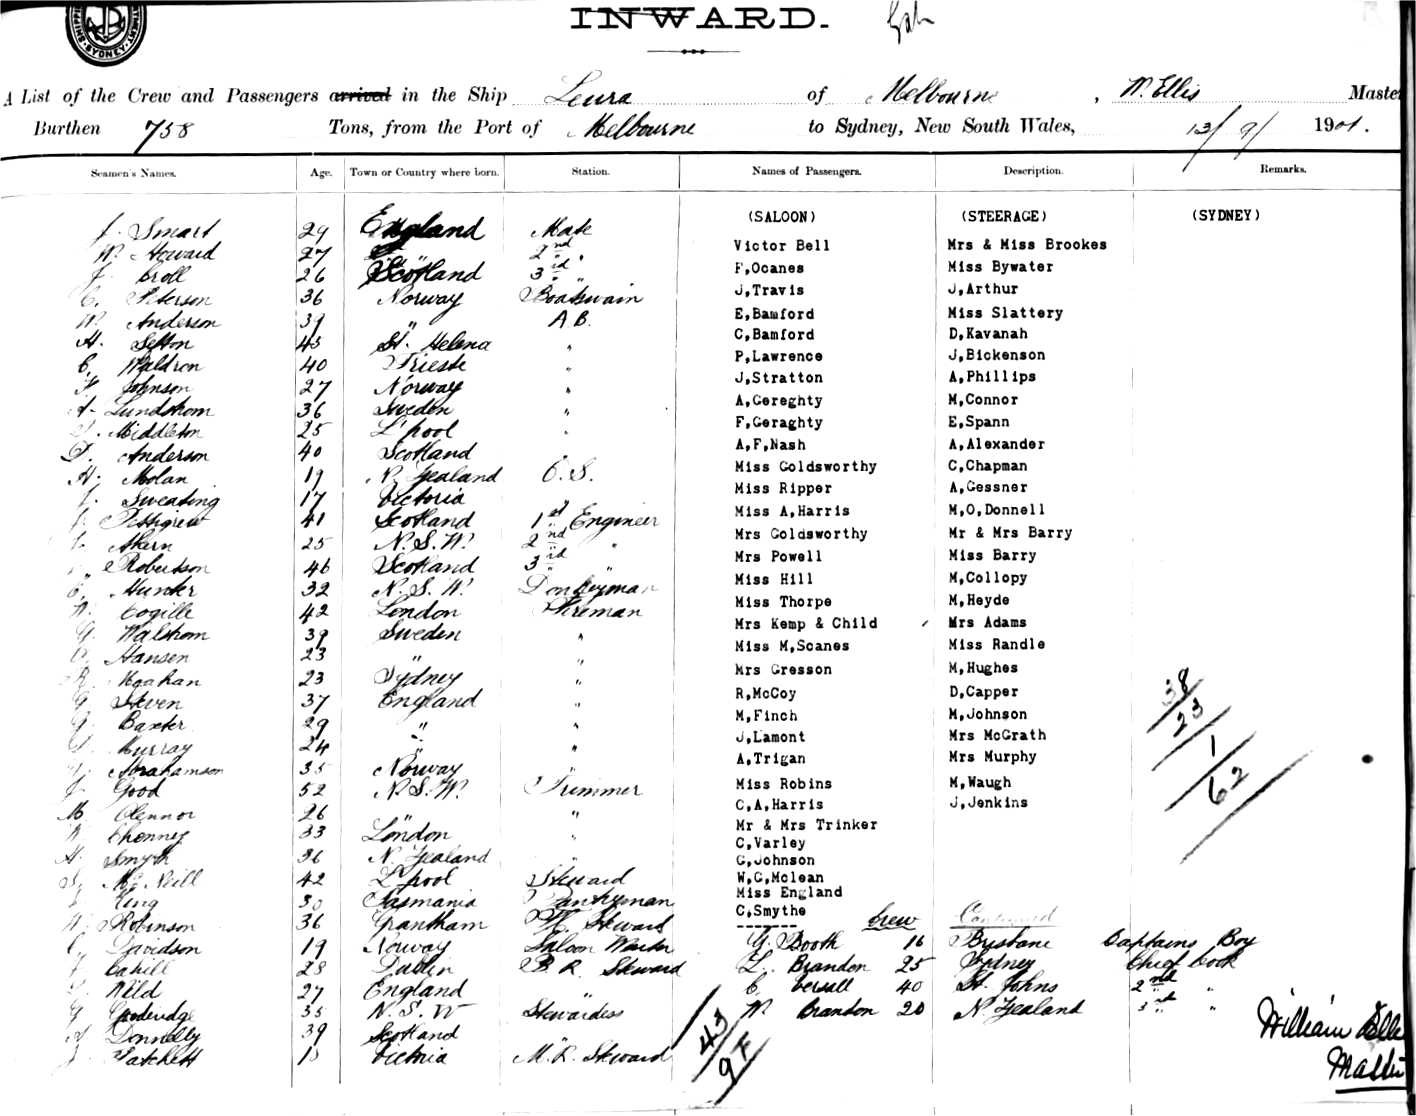 INWARD.
A List of the Crew and Passengers arrival in the Ship Leura of Melbourne, W. Ellis Master
Burthen 758 Tons, from the Port of Melbourne to Sydney, New South Wales, 13/9/1901.
Seamen's Names. Age. Town or Country where born. Station. Names of Passengers. Description. Remarks.
(SALOON) (STEERAGE) (SYDNEY)
J. Smart 29 England Mate
W. Howard 27 " 2nd "
J. Croll 26 Scotland 3rd "
C. Peterson 36 Norway Boatswain
W. Anderson 39 " A B.
H. Sefton 45 St. Helena "
C. Waldron 40 Trieste "
F. Johnson 27 Norway "
A. Lundstrom 36 Sweden "
Middleton 25 L'pool "
D. Anderson 40 Scotland
H. Nolan 19 N. Zealand O. S.
J. Sweating 17 Victoria "
Pettigrew 41 Scotland 1st Engineer
Ahern 25 N. S. W. 2nd "
Robertson 46 Scotland 3rd "
Hunter 32 N. S. W. Donkeyman
Cogille 42 London Fireman
Walstrom 39 Sweden "
Hansen 23 " "
23 Sydney "
G. Steven 37 England "
G. Baxter 29 " "
Murray 24 " "
Abrahamson 35 Norway "
J. Good 52 N. S. W. Trimmer
M. 26 " "
Chenney 33 London "
H. Smyth 36 N. Zealand "
McNeill 42 L'pool Steward
King 30 Tasmania Pantryman
Robinson 36 Grantham Steward
C. Davidson 19 Norway Saloon Waiter
Cahill 28 Dublin B. R. Steward
Wild 27 England "
35 N. S. W Stewardess
Donnelly 39 Scotland "
J. Patchett Victoria M. R. Steward
Victor Bell Mrs & Miss Brookes
F,Ocanes Miss Bywater
J,Travis J,Arthur
E,Bamford Miss Slattery
C,Bamford D,Kavanah
P,Lawrence J,Bickenson
J,Stratton A,Phillips
A,Gereghty M,Connor
F,Geraghty E,Spann
A,F,Nash A,Alexander
Miss Goldsworthy C,Chapman
Miss Ripper A,Gessner
Miss A,Harris M,O,Donnell
Mrs Goldsworthy Mr & Mrs Barry
Mrs Powell Miss Barry
Miss Hill M,Collopy
Miss Thorpe M,Heyde
Mrs Kemp & Child Mrs Adams
Miss M,Scanes Miss Randle
Mrs Gresson M,Hughes
R,McCoy D,Capper
M,Finch M,Johnson
J,Lamont Mrs McGrath
A,Trigan Mrs Murphy
Miss Robins M,Waugh
C,A,Harris J,Jenkins
Mr & Mrs Trinker
C,Varley
G,Johnson
W,G,Mclean
Miss England
C,Smythe
Crew Continued
G. Booth 16 Brisbane Captains Boy
L. Brandon 25 Sydney Chief Cook
C. Versall 40 St. Johns 2nd "
W. Brandon 20 N. Zealand 3rd "
38
23
1
62
43
97
William Ellis
Master